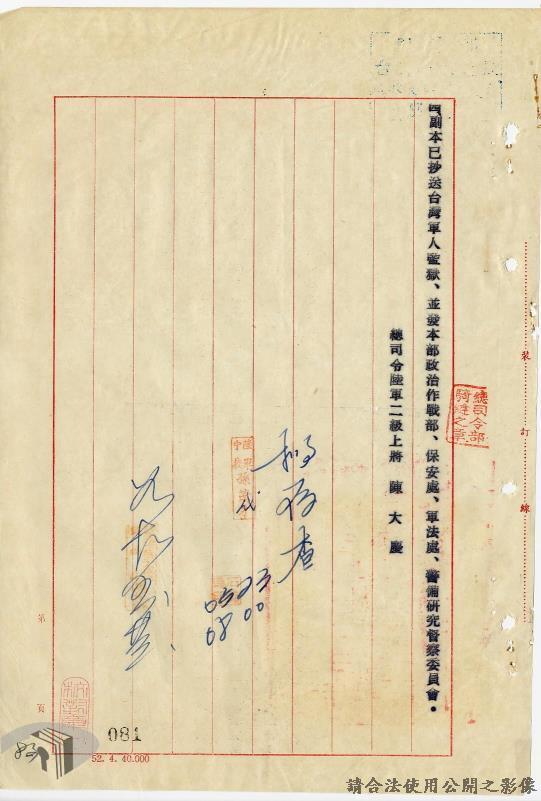 四副本已抄送台灣軍人監獄、並發本部政治作戰部、保安處、軍法處、警備研究督察委員會。
總司令陸軍二級上將 陳大慶
總司令部
騎縫之章
裝 訂 線
擬存查
0523
0800
第 頁
081
52. 4. 40.000
請合法使用公開之影像